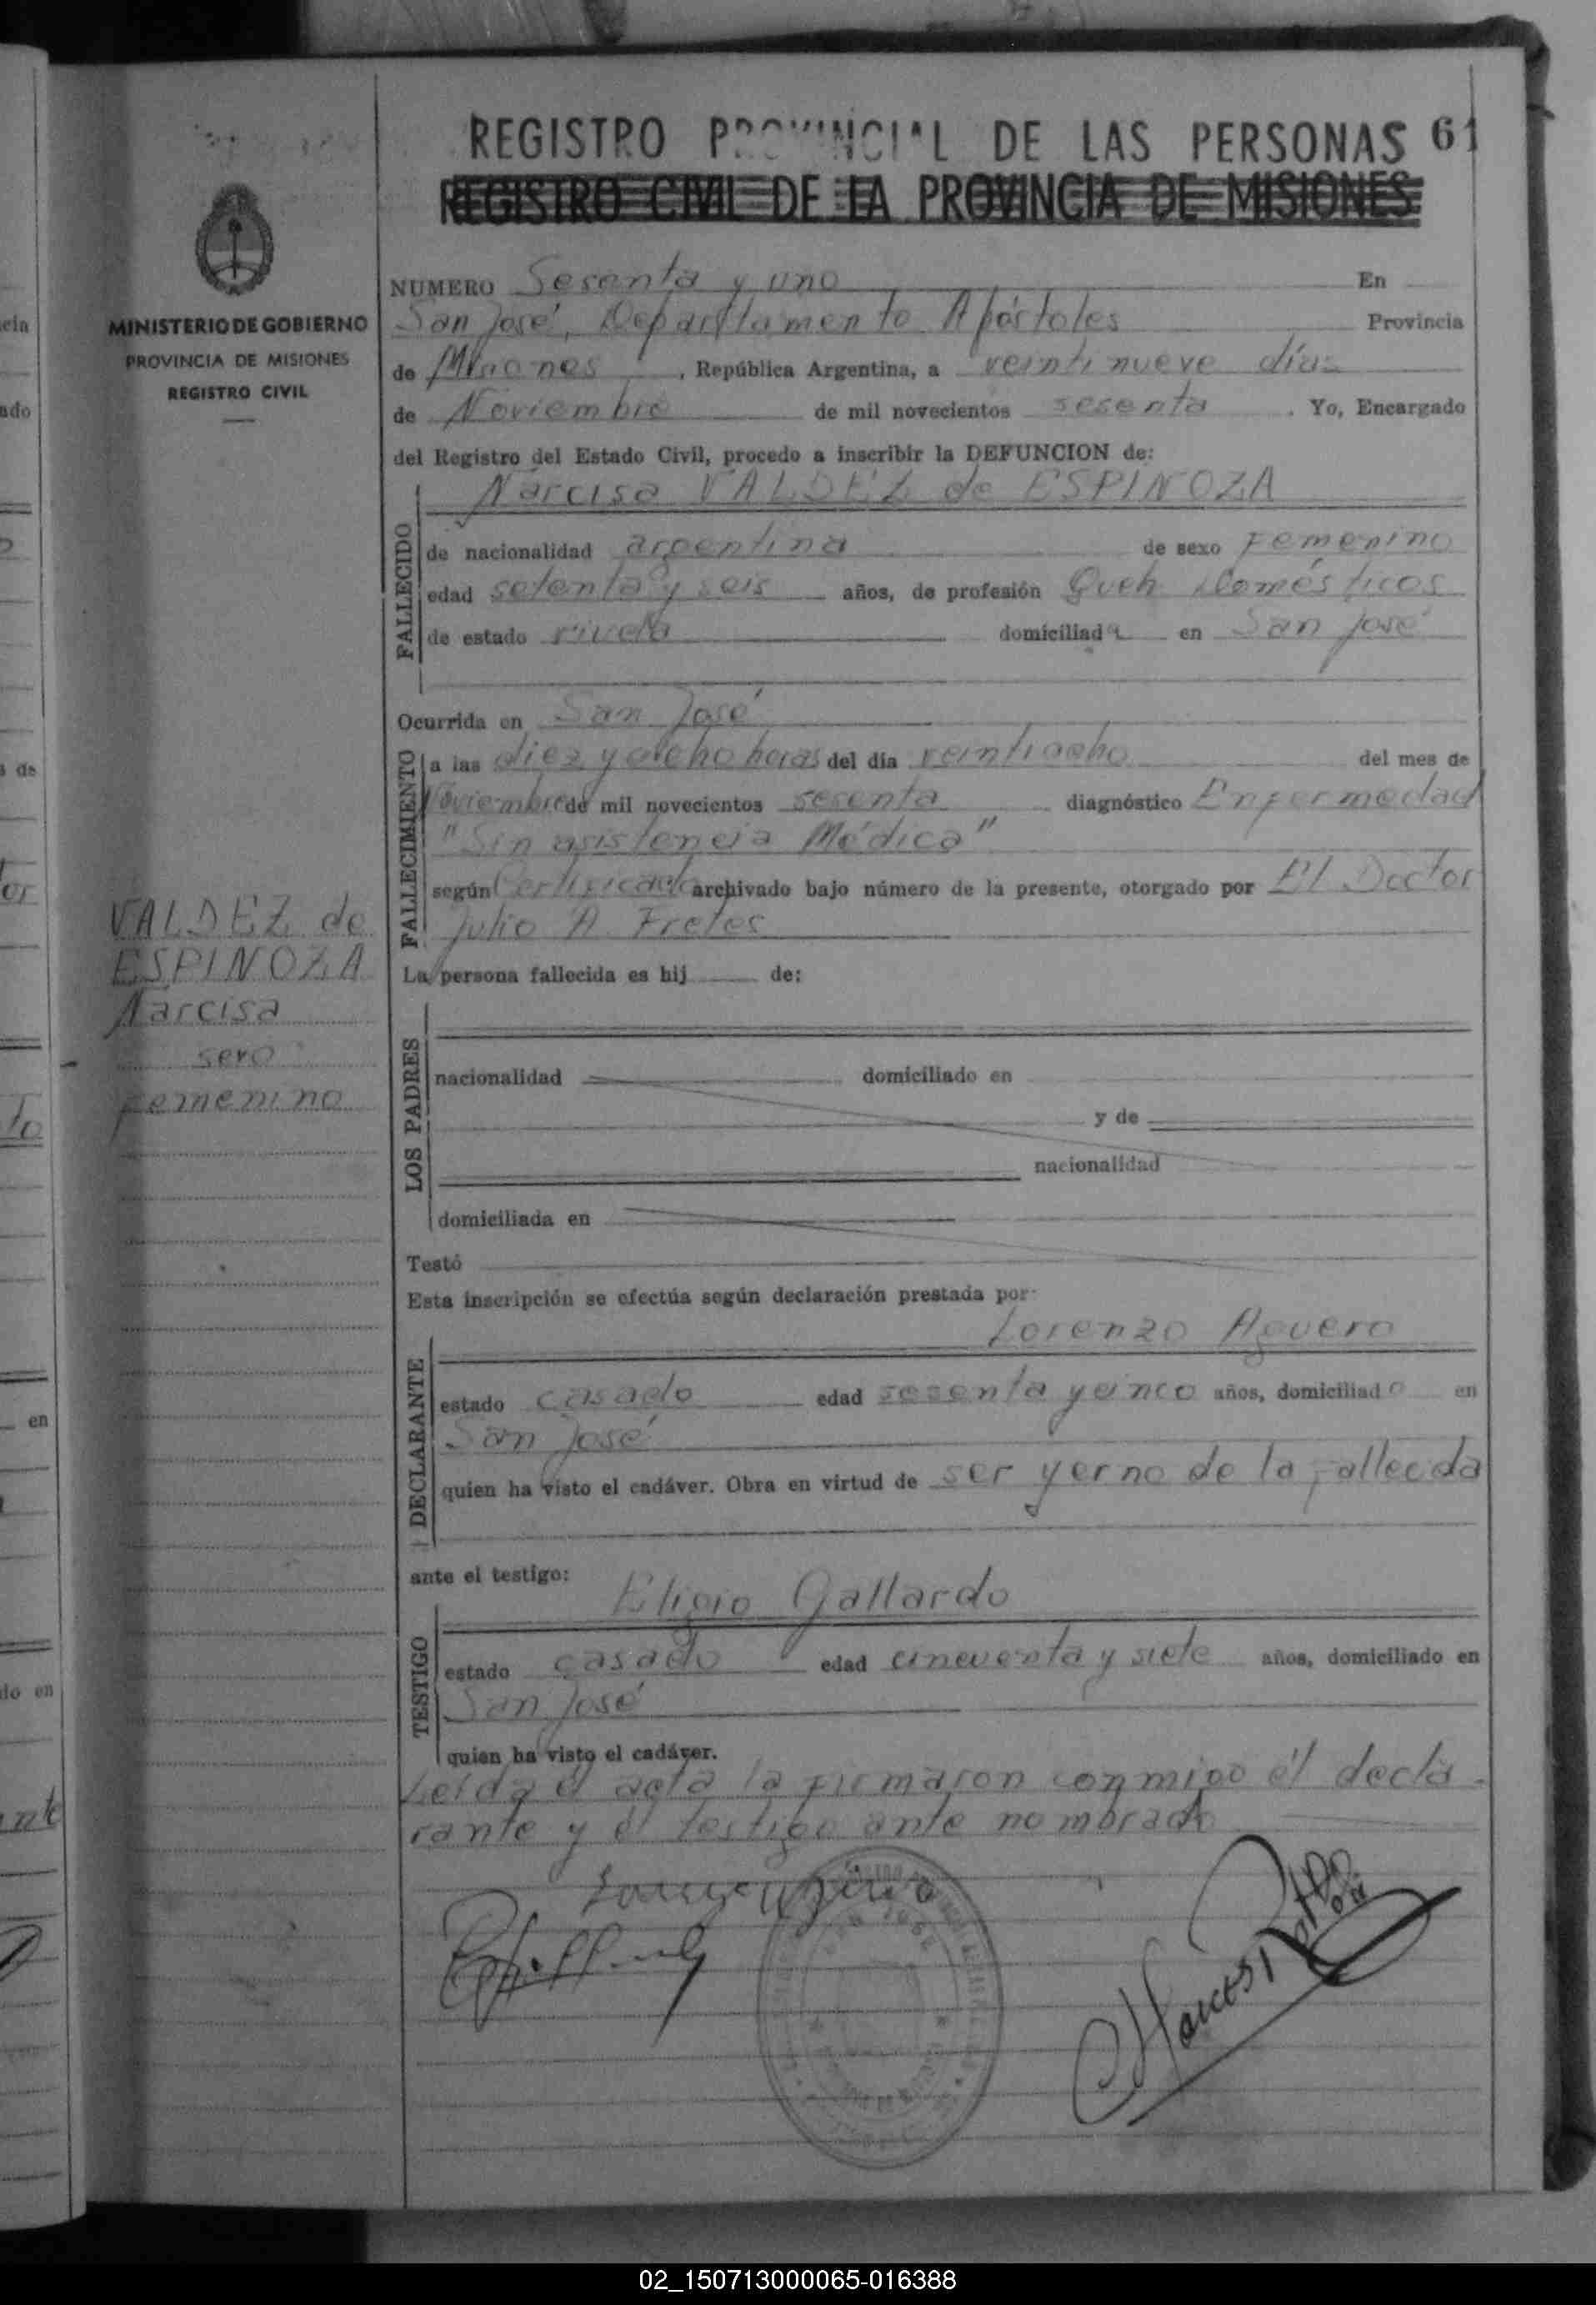 REGISTRO PROVINCIAL DE LAS PERSONAS 61
REGISTRO CIVIL DE LA PROVINCIA DE MISIONES
MINISTERIO DE GOBIERNO
PROVINCIA DE MISIONES
REGISTRO CIVIL
NUMERO Sesenta y uno En
San José, Departamento Apóstoles Provincia
de Misiones, República Argentina, a veintinueve días
de Noviembre de mil novecientos sesenta. Yo, Encargado
del Registro del Estado Civil, procedo a inscribir la DEFUNCION de:
Narcisa VALDEZ de ESPINOZA
FALLECIDO
de nacionalidad argentina de sexo Femenino
edad setenta y seis años, de profesión Queh Domésticos
de estado viuda domiciliada en San José
Ocurrida en San José
FALLECIMIENTO
a las diez y ocho horas del día veintiocho del mes de
Noviembre de mil novecientos sesenta diagnóstico Enfermedad
"Sin asistencia Médica"
según Certificado archivado bajo número de la presente, otorgado por El Doctor
Julio A Fretes
La persona fallecida es hij de:
VALDEZ de
ESPINOZA
Narcisa
sexo
femenino
LOS PADRES
nacionalidad domiciliado en
y de
nacionalidad
domiciliada en
Testó
Esta inscripción se efectúa según declaración prestada por:
Lorenzo Aguero
DECLARANTE
estado casado edad sesenta y cinco años, domiciliado en
San José
quien ha visto el cadáver. Obra en virtud de ser yerno de la fallecida
ante el testigo:
Eligio Gallardo
TESTIGO
estado casado edad cincuenta y siete años, domiciliado en
San José
quien ha visto el cadáver.
Leída el acta la firmaron conmigo él decla-
rante y el testigo ante nombrado
02_150713000065-016388